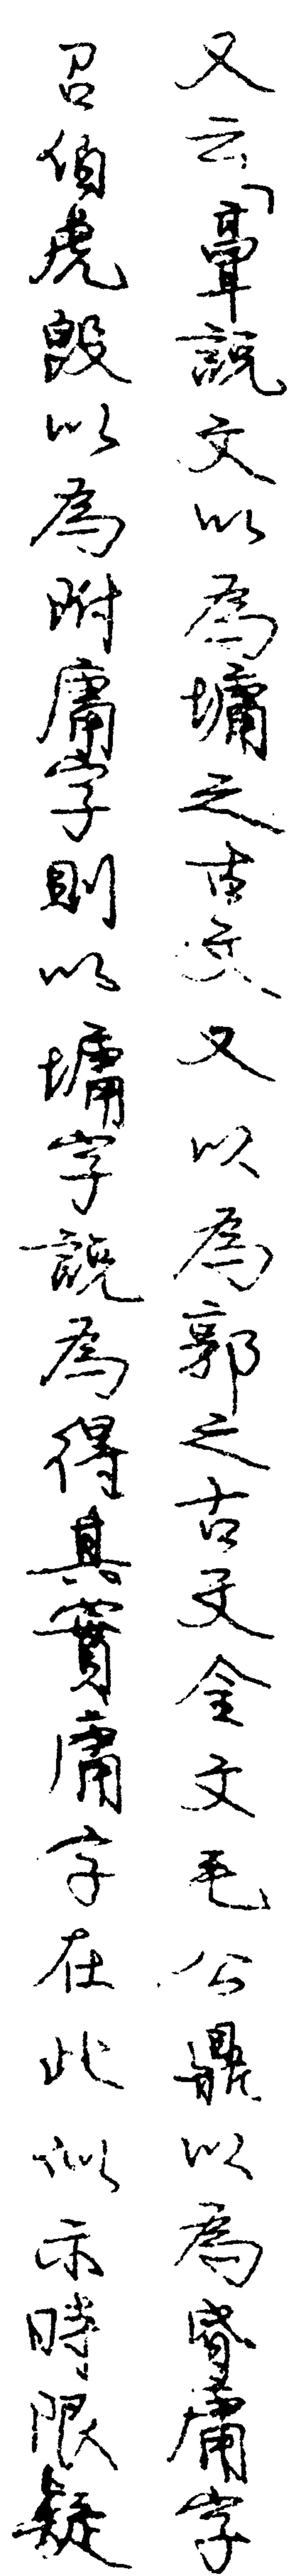 又云「𩫏說文以為墉之古文又以為郭之古文金文毛公鼎以為昏庸字
召伯虎𣪘以為附庸字則以墉字說為得其實庸字在此似示時限疑